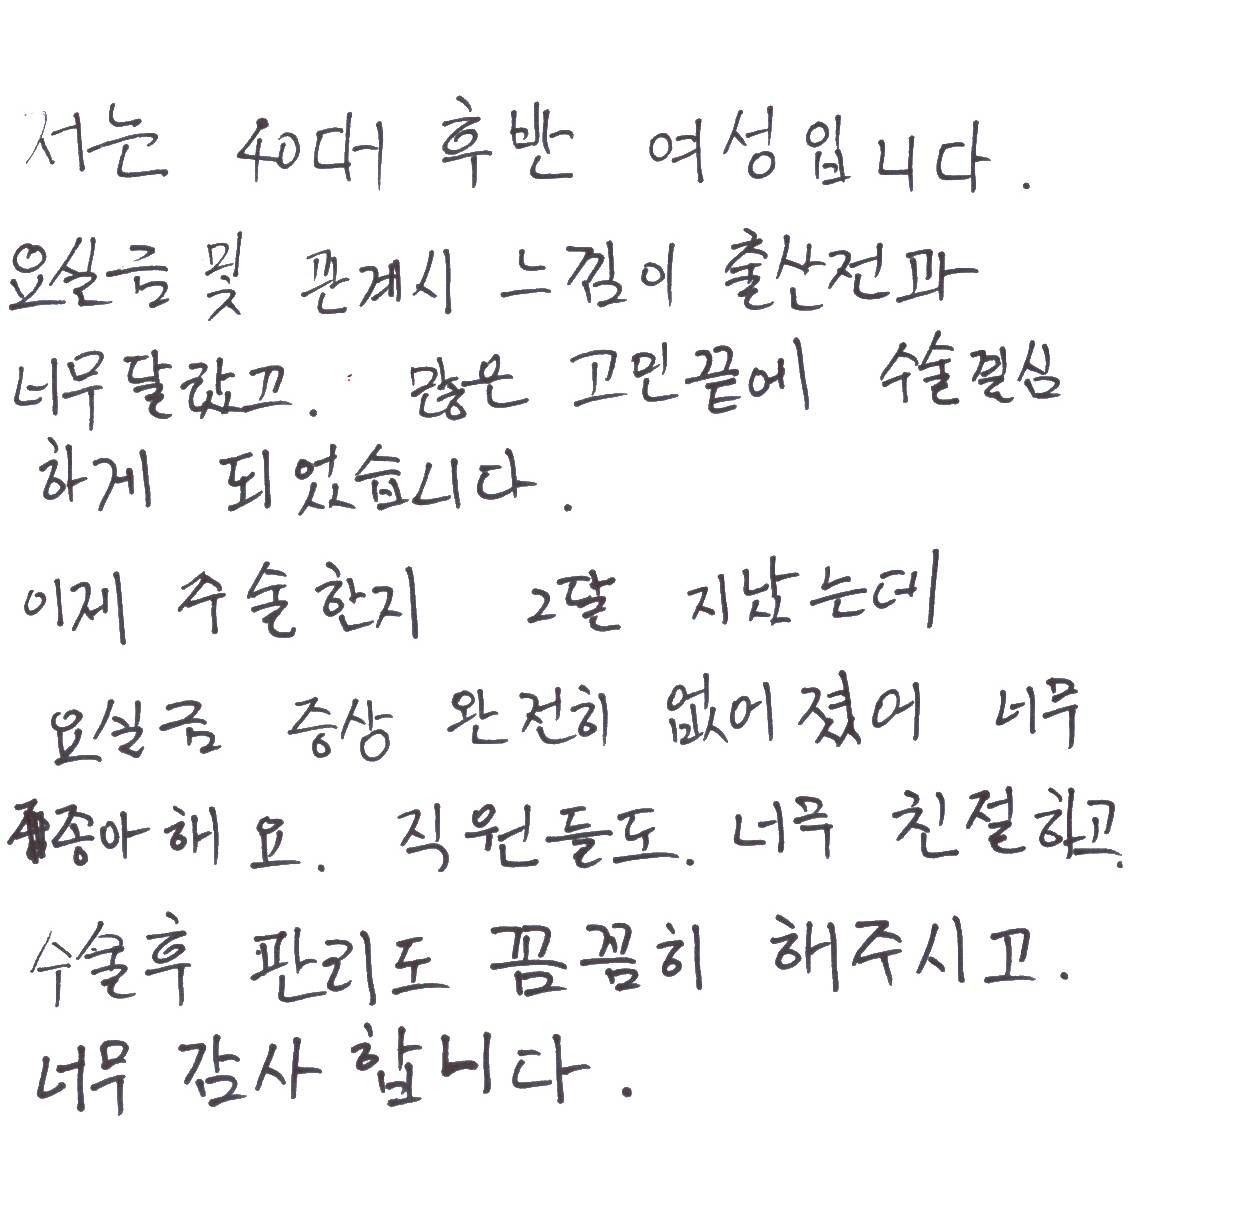 저는 40대 후반 여성입니다.
요실금 및 관계시 느낌이 출산전과
너무 달랐고. 많은 고민끝에 수술결심
하게 되었습니다.
이제 수술한지 2달 지났는데
요실금 증상 완전히 없어졌어 너무
좋아해요. 직원들도. 너무 친절하고.
수술후 관리도 꼼꼼히 해주시고.
너무 감사합니다.